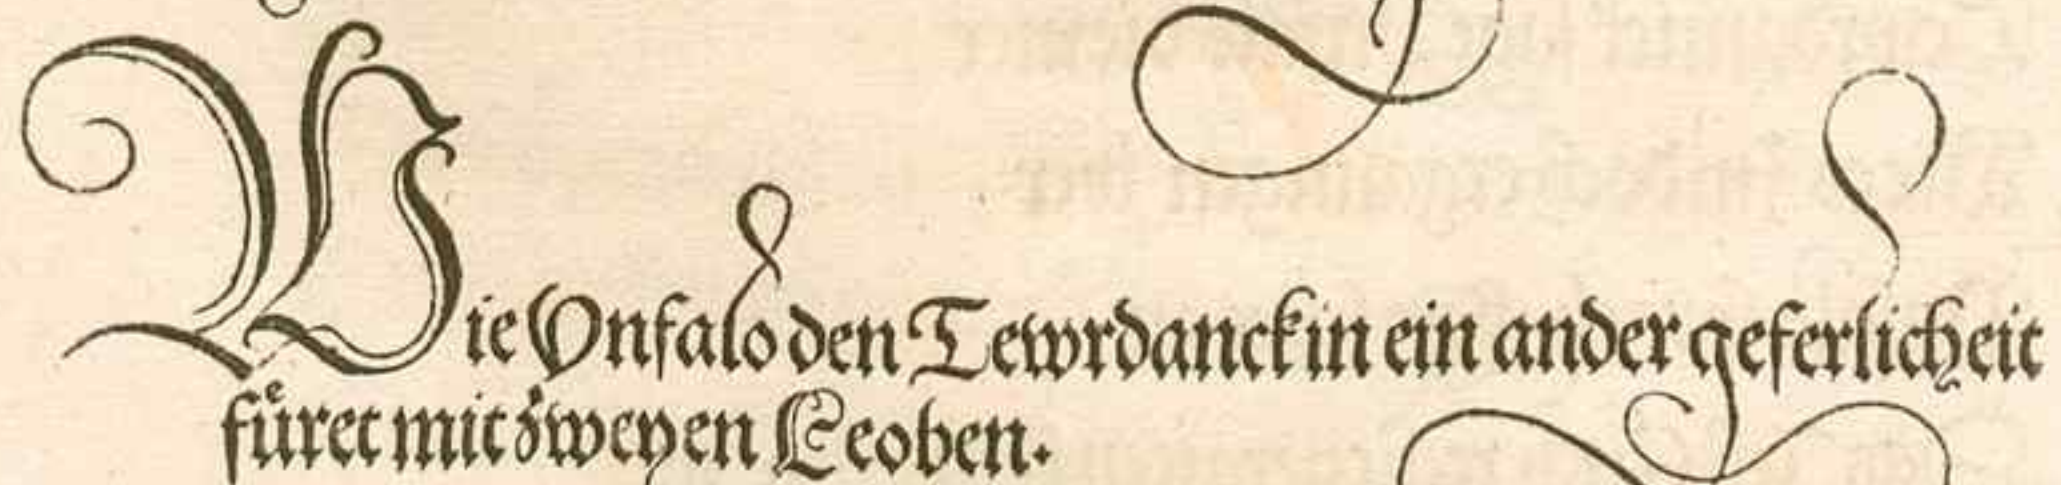 Wie Vnfalo den Tewrdanck in ein ander geferlicheit
fuͤret mit zweyen Leoben.